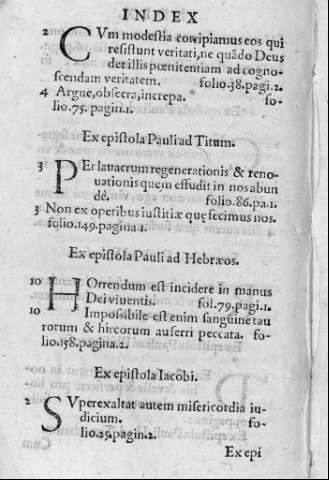 INDEX
2 CVm modestia corripiamus eos qui
resistunt veritati, ne quãdo Deus
det illis pœnitentiam ad cogno-
scendam veritatem. folio.38.pagi.2.
4 Argue, obsecra, increpa. fo-
lio.75. pagin.1.
Ex epistola Pauli ad Titum.
3 PEr lauacrum regenerationis & reno-
uationis quem effudit in nos abun
dé. folio.86.pa.1.
3 Non ex operibus iustitiæ quę fecimus nos.
folio.149.pagina 1.
Ex epistola Pauli ad Hebræos.
10 HOrrendum est incidere in manus
Dei viuentis. fol.79.pagi.1.
10 Impossibile est enim sanguine tau
rorum & hircorum auferri peccata. fo-
lio.158.pagina.2.
Ex epistola Iacobi.
2 SVperexaltat autem misericordia iu-
dicium. fo-
lio.25.pagin.2.
Ex epi